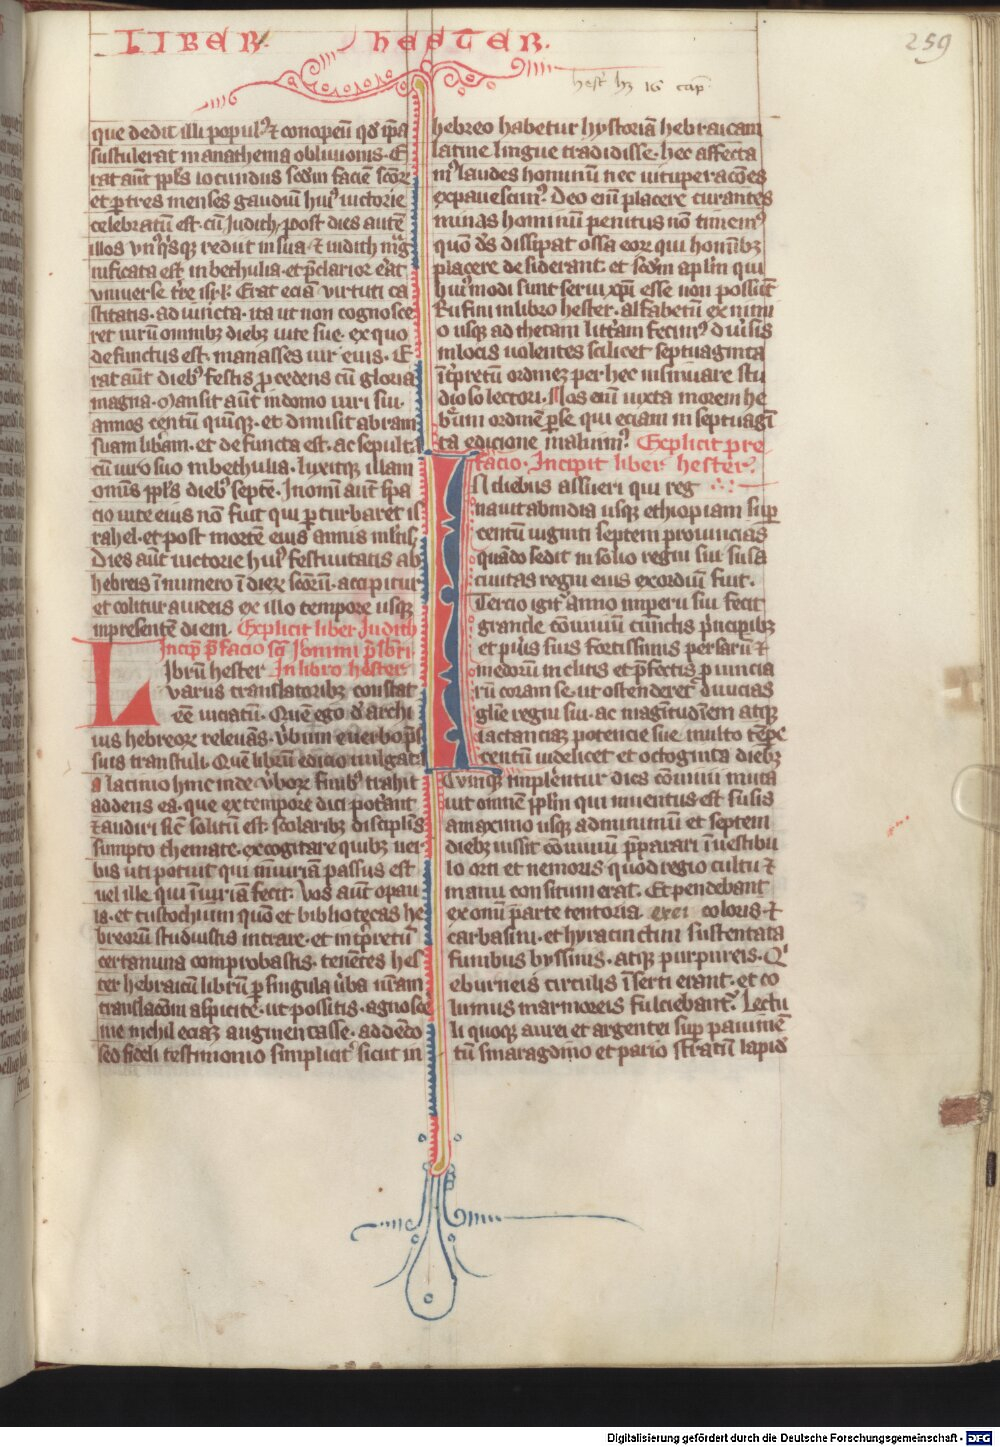 LIBER HESTER.
259
hest' hz 16 cap
que dedit illi popul9 ⁊ conopeū qd' ip̄a
sustulerat in anathema obliuionis. E
rat aūt ppl's iocundus scdm faciē scōꝝ
et per tres menses gaudiū hui9 uictorie
celebratū est. cū Judith. post dies autē
illos vn9q'sq3 rediit in sua. ⁊ iudith mag
nificata est in bethulia. et p̄clarior erat
vniuerse t're isrl'. Erat eciā virtuti ca
stitatis. adiuncta. ita ut non cognosce
ret uirū omnib3 dieb3 uite sue. ex quo
defunctus est. manasses uir eius. E
rat aūt dieb9 festis pcedens cū gloria
magna. Mansit aūt in domo uiri sui.
annos centū quinq3. et dimisit abram
suam lib'am. et defuncta est. ac sepult.
cū uiro suo in bethulia. luxitq3 illam
omnis ppl's dieb9 septē. In omni aūt spa
cio uite eius nō fuit qui pturbaret is
rahel. et post mortē eius annis m'ltis.
Dies aūt uictorie hui9 festiuitatis ab
hebreis ī numero ī dieꝝ scōꝝ. accipitur
et colitur a iudeis ex illo tempore usq3
in presentē diem. Explicit liber Judith
Incip̄ p̄facio sc̄i Jeronimi p̄sb'ri
Librū hester In libro hester.
varius translatorib3 constat
eē uiciatū. Quē ego d' archi
uis hebreoꝝ releuās. v'bum e uerbo p̄s
sius transtuli. Quē librū edicio uulgata
lacinio hinc inde v'boꝝ finib9 trahit
addens ea. que ex tempore dici pot'ant
⁊ audiri sic' solitū est. scolarib3 disciplīs
sumpto themate. excogitare quib3 uer
bis uti potuit qui iniuriā passus est
uel ille qui iniuriā fecit. Vos aūt o pau
la. et eustochium quoē et bibliotecas he
breorū studuistis intrare. et int'pretū
certamina comprobastis. tenētes hes
ter hebraicū librū p singula v'ba nr̄am
translacōem aspicite. ut possitis. agnosce
me nichil eciam augmentasse. addēdo
sed fideli testimonio simplicit' sicut in
hebreo habetur hystoriā hebraicam
latine lingue tradidisse. nec affecta
m9 laudes hominū nec uituperacōes
expauescim9. Deo enī placere curantes
minas hominū penitus nō timem9
quō d's dissipat ossa eoꝝ qui homīb3
placere desiderant. et scdm ap'lm qui
hui9modi sunt serui xp̄i esse non possūt
Rufini in libro hester. alfabetū ex mini
o usq3 ad thetam litt'am fecim9 diu'sis
in locis uolentes scilicet septuaginta
int'pretū ordinē per hec insinuare stu
dioso lectori. Nos enī iuxta morem he
b'um ordinē p'se qui eciam in septuagī
ta edicione maluim9. Explicit pre
facio. Incipit liber hester.
IN diebus assueri qui reg
nauit ab india usq3 ethiopiam sup
centū uiginti septem prouincias
quādo sedit in solio regni sui susa
ciuitas regni eius exordiū fuit.
Tercio igit' anno imperii sui fecit
grande cōuiuiū cūctis p'ncipib3
et pu'is suis fortissimis persarū ⁊
medorū inclitis et p̄fectis prouincia
rū coram se. ut ostenderet diuicias
gl'ie regni sui. ac magnitudīem atq3
iactanciam potencie sue multo tēp'e
centū uidelicet et octoginta dieb3
Cumq3 implerentur dies cōuiuii inuita
uit omnē pp'lm qui inuentus est susis
a maximo usq3 ad minimū et septem
dieb3 iussit cōuiuiū p̄parari ī uestibu
lo orti et nemoris quod regio cultu ⁊
manu consitum erat. Et pendebant
ex omni parte tentoria. aerei coloris. ⁊
carbasini. et hyacinctini sustentata
funibus byssinis. atq3 purpureis. Q'
eburneis circulis īserti erant. et co
lumnis marmoreis fulciebant'. Lectu
li quoq3 aurei et argentei sup pauimē
tū smaragdino et pario stratū lapid'
Digitalisierung gefördert durch die Deutsche Forschungsgemeinschaft - DFG